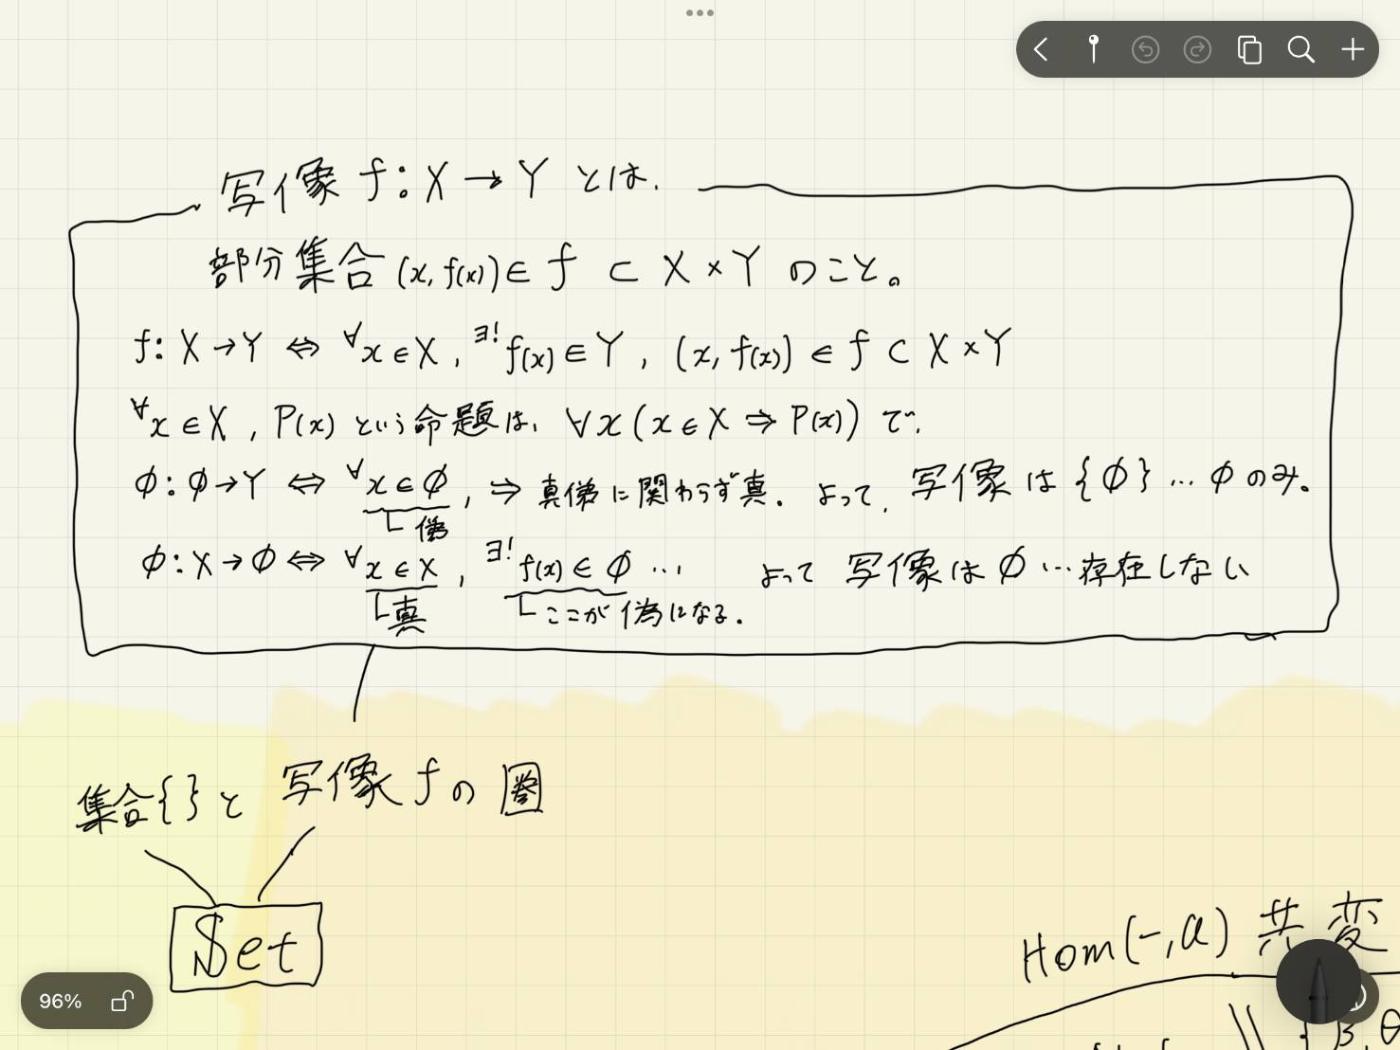 写像 f: X → Y とは、
部分集合 (x, f(x)) ∈ f ⊂ X × Y のこと。
f: X → Y ⇔ ∀x ∈ X, ∃! f(x) ∈ Y, (x, f(x)) ∈ f ⊂ X × Y
∀x ∈ X, P(x) という命題は、 ∀x (x ∈ X ⇒ P(x)) で、
φ: φ → Y ⇔ ∀x ∈ φ, ⇒ 真偽に関わらず真. よって、写像は {φ} … φ のみ。
偽
φ: X → φ ⇔ ∀x ∈ X, ∃! f(x) ∈ φ … よって 写像は φ … 存在しない
真 ここが偽になる.
集合{ }と 写像 f の 圏
Set
Hom(-, a) 共変
96%